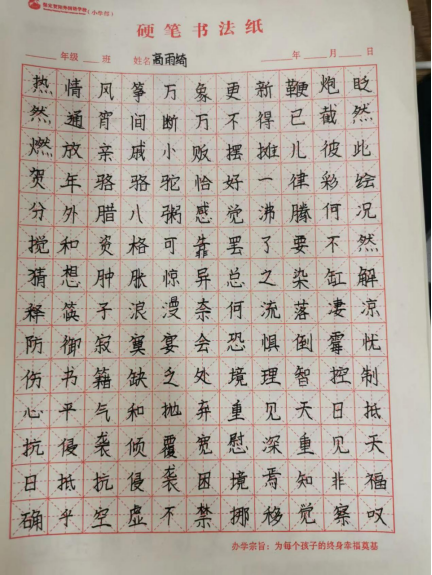 (小学部)
硬笔书法纸
年级 班 姓名高雨绮 年 月 日
热情风筝万象更新鞭炮眨
然通宵间断万不得已截然
燃放亲戚小贩摆摊儿彼此
贺年骆骆驼恰好一律彩绘
分外腊八粥感觉沸腾何况
搅和资格可靠罢了要不然
猜想肿胀惊异总之染缸解
释筷子浪漫奈何流落凄凉
防御寂寞宴会恐惧倒霉忧
伤书籍缺乏处境理智控制
心平气和抛弃重见天日抵
抗侵袭倾覆宽慰深重见天
日抵抗侵袭困境焉知非福
确乎空虚不禁挪移觉察叹
办学宗旨：为每个孩子的终身幸福奠基